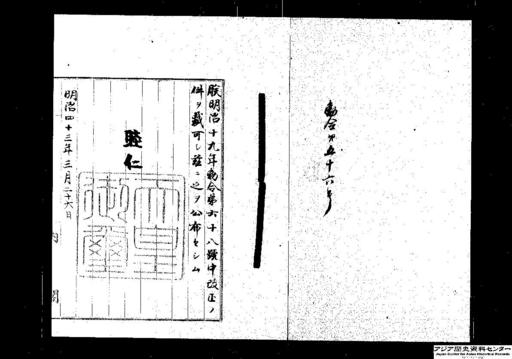 勅令第五十六号
朕明治十九年勅令第六十八號中改正ノ
件ヲ裁可シ茲ニ之ヲ公布セシム
睦仁
天皇御璽
明治四十三年三月二十六日
内閣
アジア歴史資料センター
Japan Center for Asian Historical Records